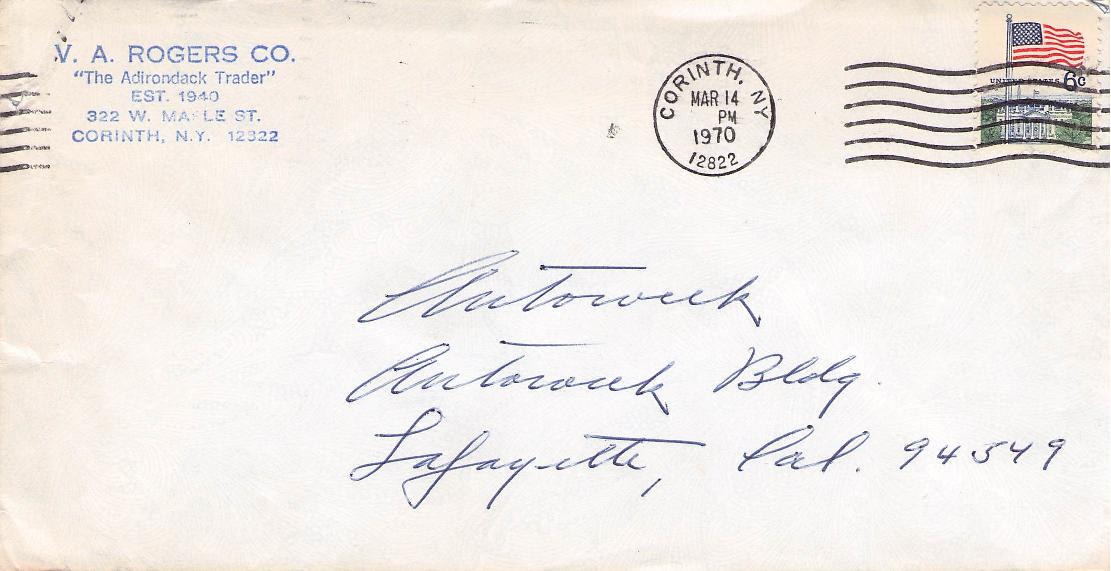 V. A. ROGERS CO.
"The Adirondack Trader"
EST. 1940
322 W. MAPLE ST.
CORINTH, N.Y. 12822
CORINTH, NY
MAR 14
PM
1970
12822
UNITED STATES 6c
Autoweek
Autoweek Bldg.
Lafayette, Cal. 94549